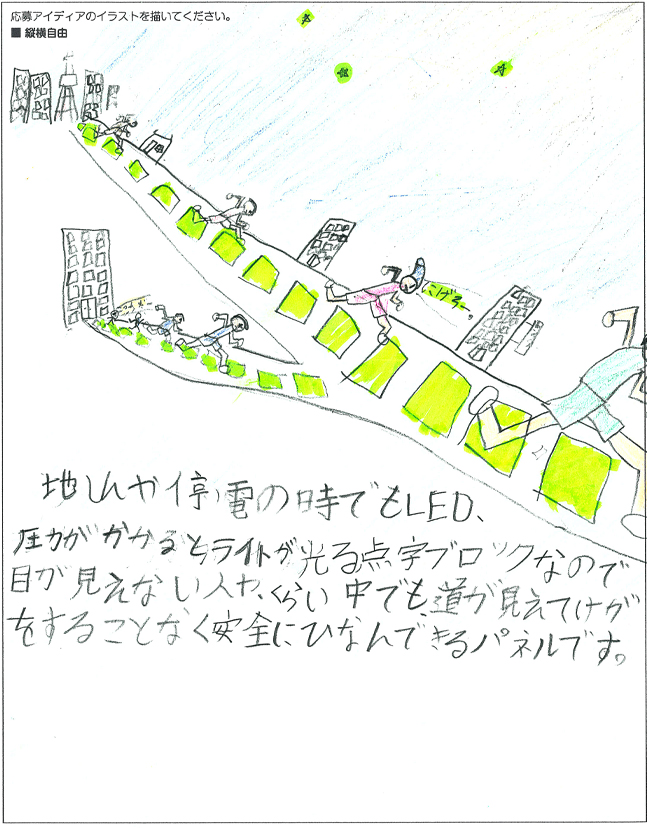 応募アイディアのイラストを描いてください。
■ 縦横自由
にげろー。
地しんや停電の時でもLED、
圧力がかかるとライトが光る点字ブロックなので
目が見えない人や、くらい中でも、道が見えてけが
をすることなく安全にひなんできるパネルです。